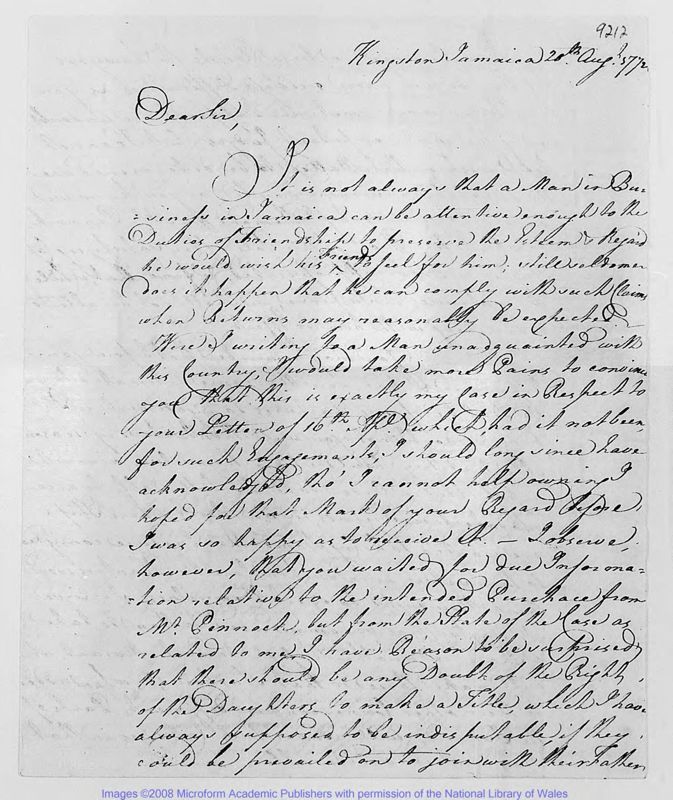 9212
Kingston Jamaica 20th. Augt. 1772
Dear Sir,
It is not always that a Man in Bu=
=siness in Jamaica can be attentive enough to the
Duties of Friendship to preserve the Esteem & Regard
he would wish his Friends to feel for him; still seldomer
does it happen that he can comply with such Claims
when Returns may reasonably be expected.
Were I writing to a Man unacquainted with
this Country, I would take more Pains to convince
you that this is exactly my Case in Respect to
your Letter of 16th. Apl. which, had it not been
for such Engagements, I should long since have
acknowledg'd, tho' I cannot help owning I
hoped for that Mark of your Regard before
I was so happy as to receive it. — I observe,
however, that you waited for due Informa=
=tion relative to the intended Purchace from
Mr. Pennock, but from the State of the Case as
related to me, I have Reason to be surprised
that there should be any Doubt of the Right
of the Daughters to make a Title, which I have
always supposed to be indisputable, if they
could be prevailed on to join with their Father
Images ©2008 Microform Academic Publishers with permission of the National Library of Wales